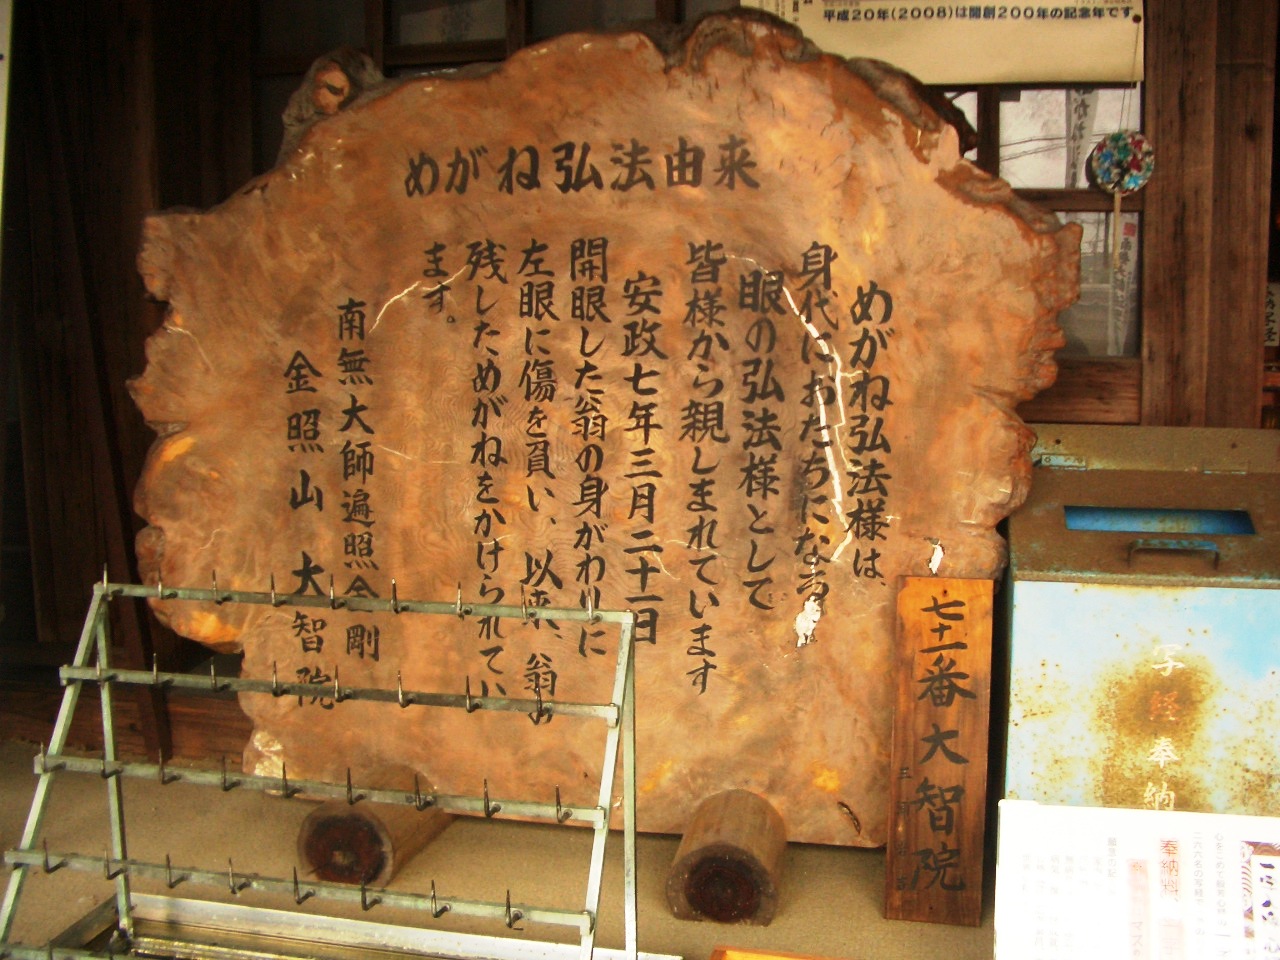 平成20年(2008)は開創200年の記念年です
めがね弘法由来
めがね弘法様は、
身代におたちになる
眼の弘法様として
皆様から親しまれています
安政七年三月二十一日
開眼した翁の身がわりに
左眼に傷を負い、以来、翁の
残しためがねをかけられてい
ます。
南無大師遍照金剛
金照山 大智院
七十一番大智院
写経奉納
奉納料